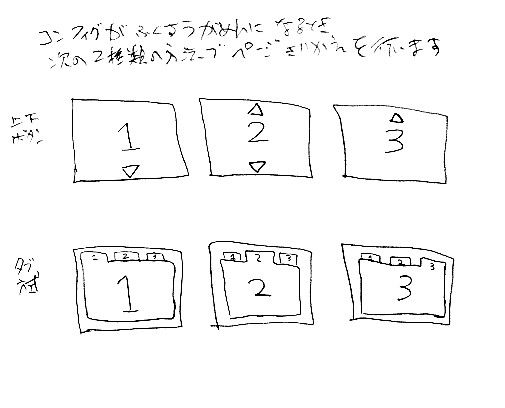 コンフィグがふくすうがめんになるとき、
次の2種類の方式でページきりかえを行います
上下
ボタン
1
2
3
タブ
方式
1 2 3
1
1 2 3
2
1 2 3
3